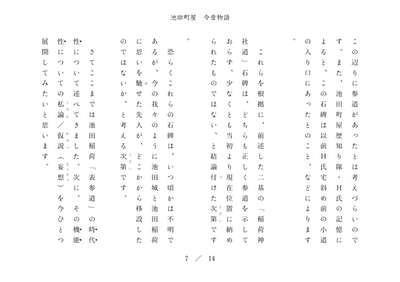 池田町屋 今昔物語
この辺りに参道があったとは考えづらいので
す。また、池田町屋歴知り隊・H氏の記憶に
よると、この石碑は以前H氏宅斜め前の小道
の入り口にあったとのこと、などによります
。
これらを根拠に、前述した二基の「稲荷神
社道」石碑は、どちらも正しく参道を示して
おらず、少なくとも当初より現在位置に納め
たものではない、と結論付けた次第です
。
恐らくこれらの石碑は、いつ頃かは不明で
あるが、今の我々のように池田城と池田稲荷
に思いを馳せた先人が、どこかから移設した
のではないか、と考える次第です。
さてここまでは池田稲荷「表参道」の時代
性について述べてきました。次に、その機能
性についての私論/仮説(妄想)を今ひとつ
展開してみたいと思います。
7 / 14